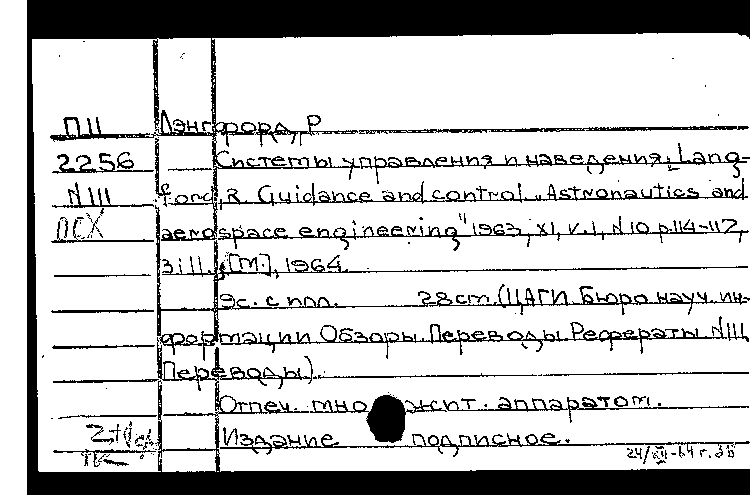 П11 Лэнгфорд, Р
2256 Системы управления и наведения. Lang-
N111 ford, R. Guidance and control. „Astronautics and
ПСХ aerospace engineering" 1963, XI, v.1, N10 p.114-117,
3 ill. [М.], 1964.
9с. с илл. 28 cm. (ЦАГИ. Бюро науч. ин-
формации Обзоры. Переводы. Рефераты N111,
Переводы).
Отпеч. множит. аппаратом.
Издание подписное.
24/XII-64 г.